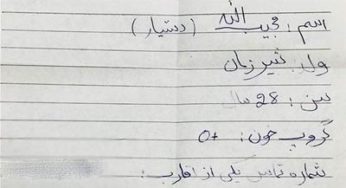 اسم: مجیب الله (دستیار)
ولد: شیر زمان
سن: 28 سال
گروپ خون: +O
شماره تماس یکی از اقارب: